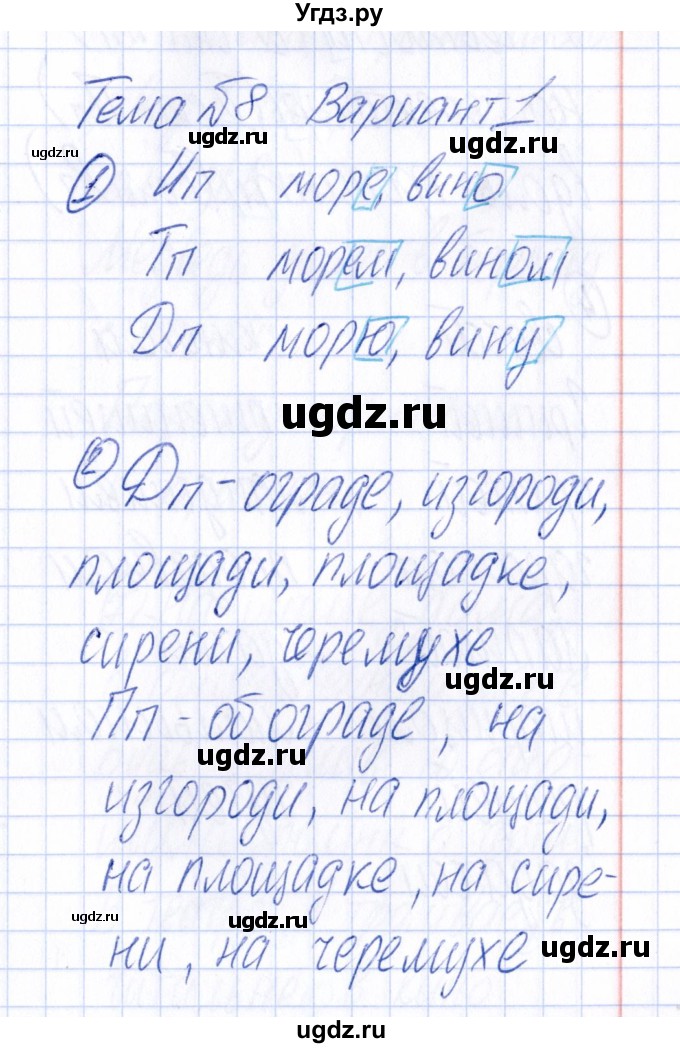 Угдз.ру
Тема №8 Вариант 1
ugdz.ru ugdz.ru ugdz.ru
1 Ип море, вино
Тп морем, вином
Дп морю, вину
ugdz.ru ugdz.ru
2 Дп - ограде, изгороди,
площади, площадке,
сирени, черемухе
ugdz.ru
Пп - об ограде, на
ugdz.ru
изгороди, на площади,
на площадке, на сире-
ugdz.ru ugdz.ru
ни, на черемухе
ugdz.ru
ugdz.ru